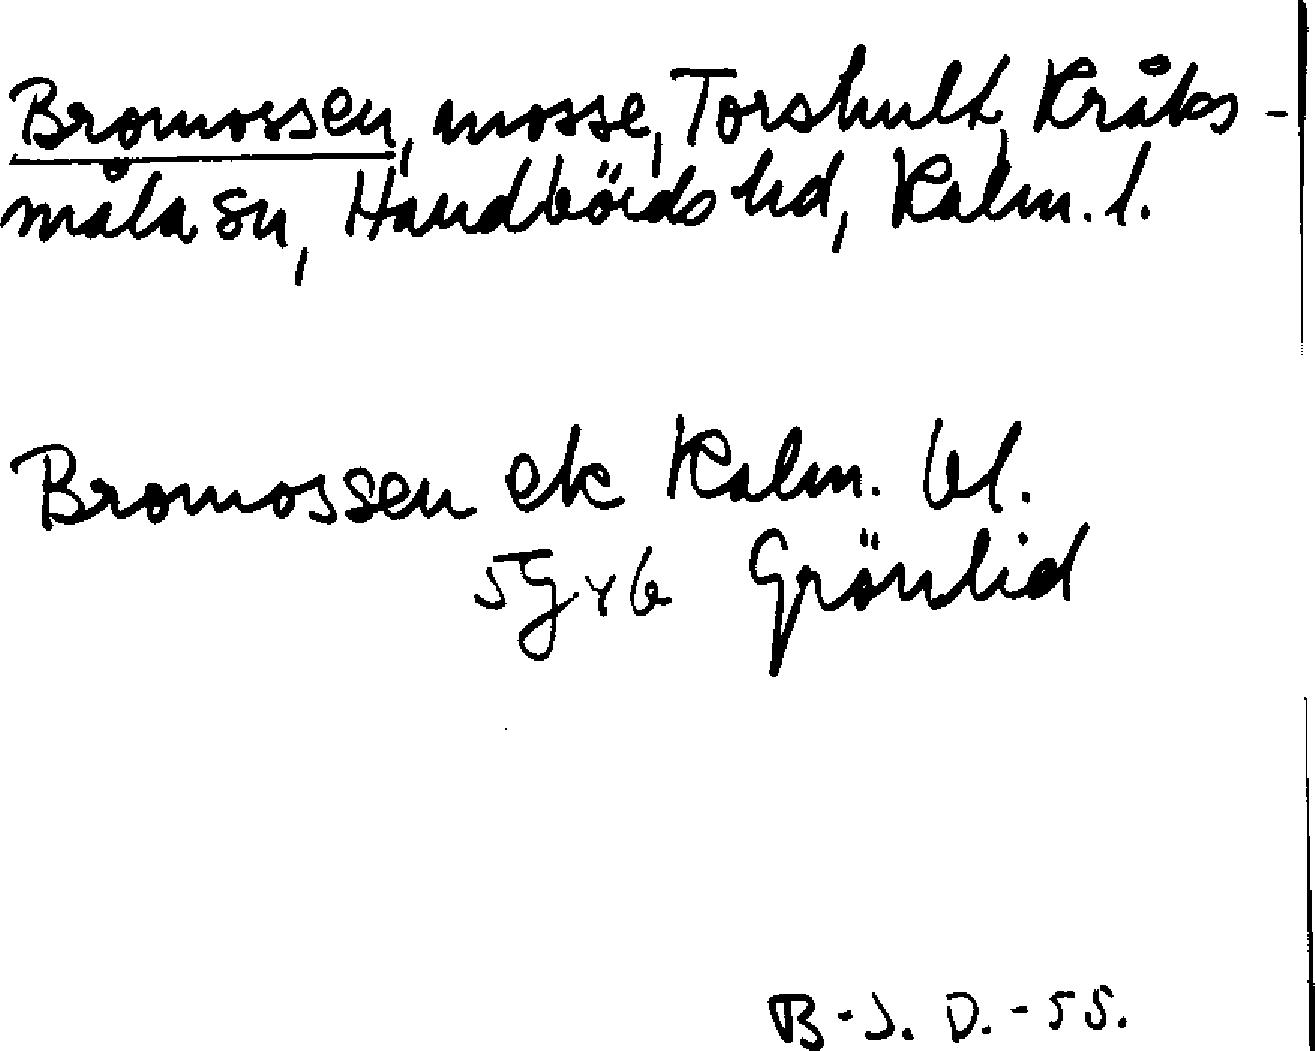 Bromossen, mosse, Torshult, Kråks-
måla sn, Handbörds hd, Kalm. l.
Bromossen ek Kalm. bl.
5G v b Grönlid
B-J. D.-55.